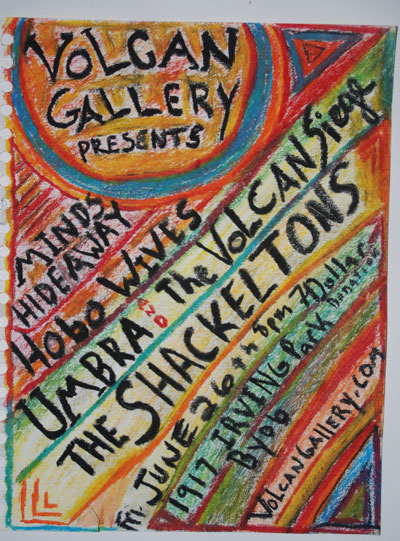 VOLCAN
GALLERY
PRESENTS
MINDS
HIDEAWAY
HOBO WIVES
UMBRA The VOLCAN Siege
THE SHACKELTONS
Fri. JUNE 26th 8pm 7 Dollar
Donation
1917 IRVING Park
Byob
VolcanGallery.com